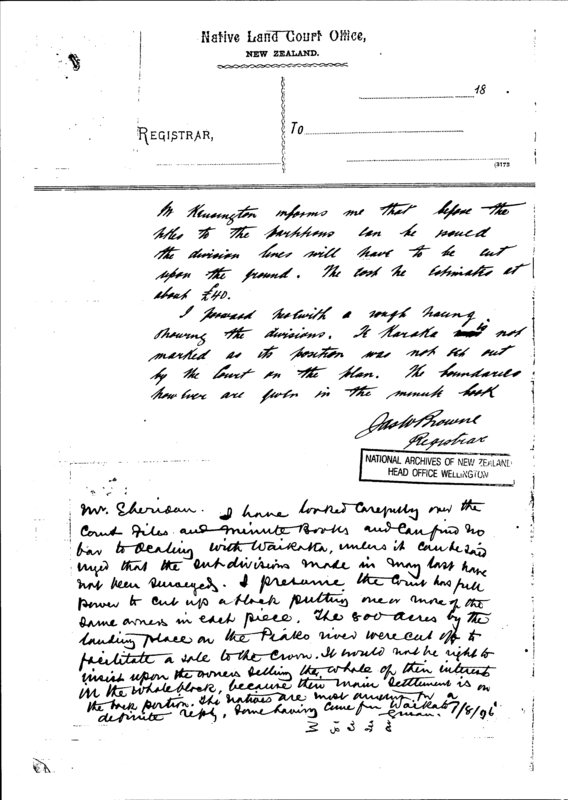 Native Land Court Office,
NEW ZEALAND.
18 .
REGISTRAR,
To
(3172
Mr Kensington informs me that before the
titles to the partitions can be issued
the division lines will have to be cut
upon the ground. The cost he estimates at
about £40.
I forward herewith a rough tracing
showing the divisions. Te Karaka is not
marked as its position was not set out
by the Court on the plan. The boundaries
however are given in the minute book
Jas W Browne
Registrar
NATIONAL ARCHIVES OF NEW ZEALAND
HEAD OFFICE WELLINGTON
Mr. Sheridan. I have looked carefully over the
Court Files and Minute Books and can find no
bar to dealing with Waikaka, unless it can be said
urged that the subdivisions made in May last have
not been surveyed. I presume the Court has full
power to cut up a block putting one or more of the
same owners in each piece. The 800 acres by the
landing place on the Piako river were cut off to
facilitate a sale to the Crown. It would not be right to
insist upon the owners selling the whole of their interest
in the whole block, because their main settlement is on
the back portion. The natives are most anxious for a
definite reply, some having come from Waikato
7/8/96